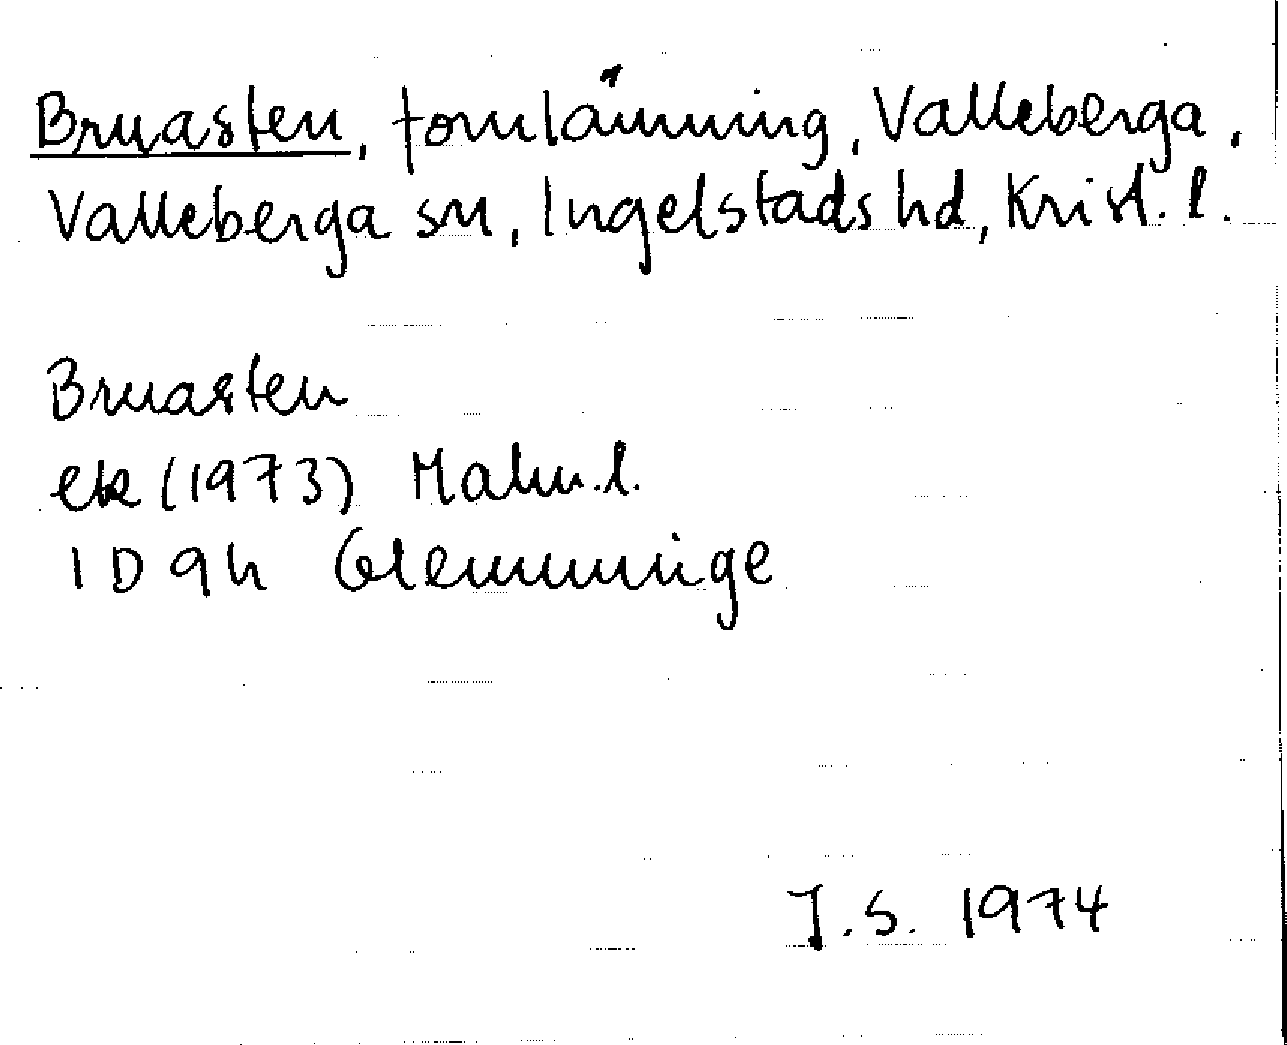 Bruasten, fornlämning, Valleberga,
Valleberga sn, Ingelstads hd, Krist. l.
Bruasten
ek (1973) Malm.l.
1D 9h Glemminge
J.S. 1974